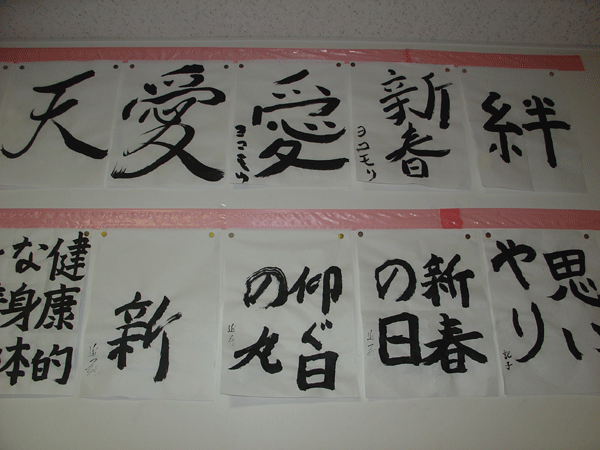 天
愛
愛
ヨコモリ
新春
ヨコモリ
絆
健康的
な身体
新
仰ぐ日
の丸
新春
の日
思い
やり